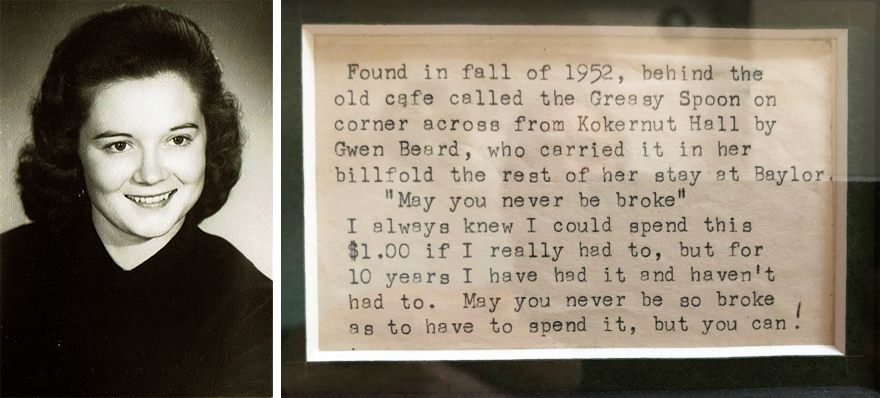 Found in fall of 1952, behind the
old cafe called the Greasy Spoon on
corner across from Kokernut Hall by
Gwen Beard, who carried it in her
billfold the rest of her stay at Baylor.
"May you never be broke"
I always knew I could spend this
$1.00 if I really had to, but for
10 years I have had it and haven't
had to. May you never be so broke
as to have to spend it, but you can!